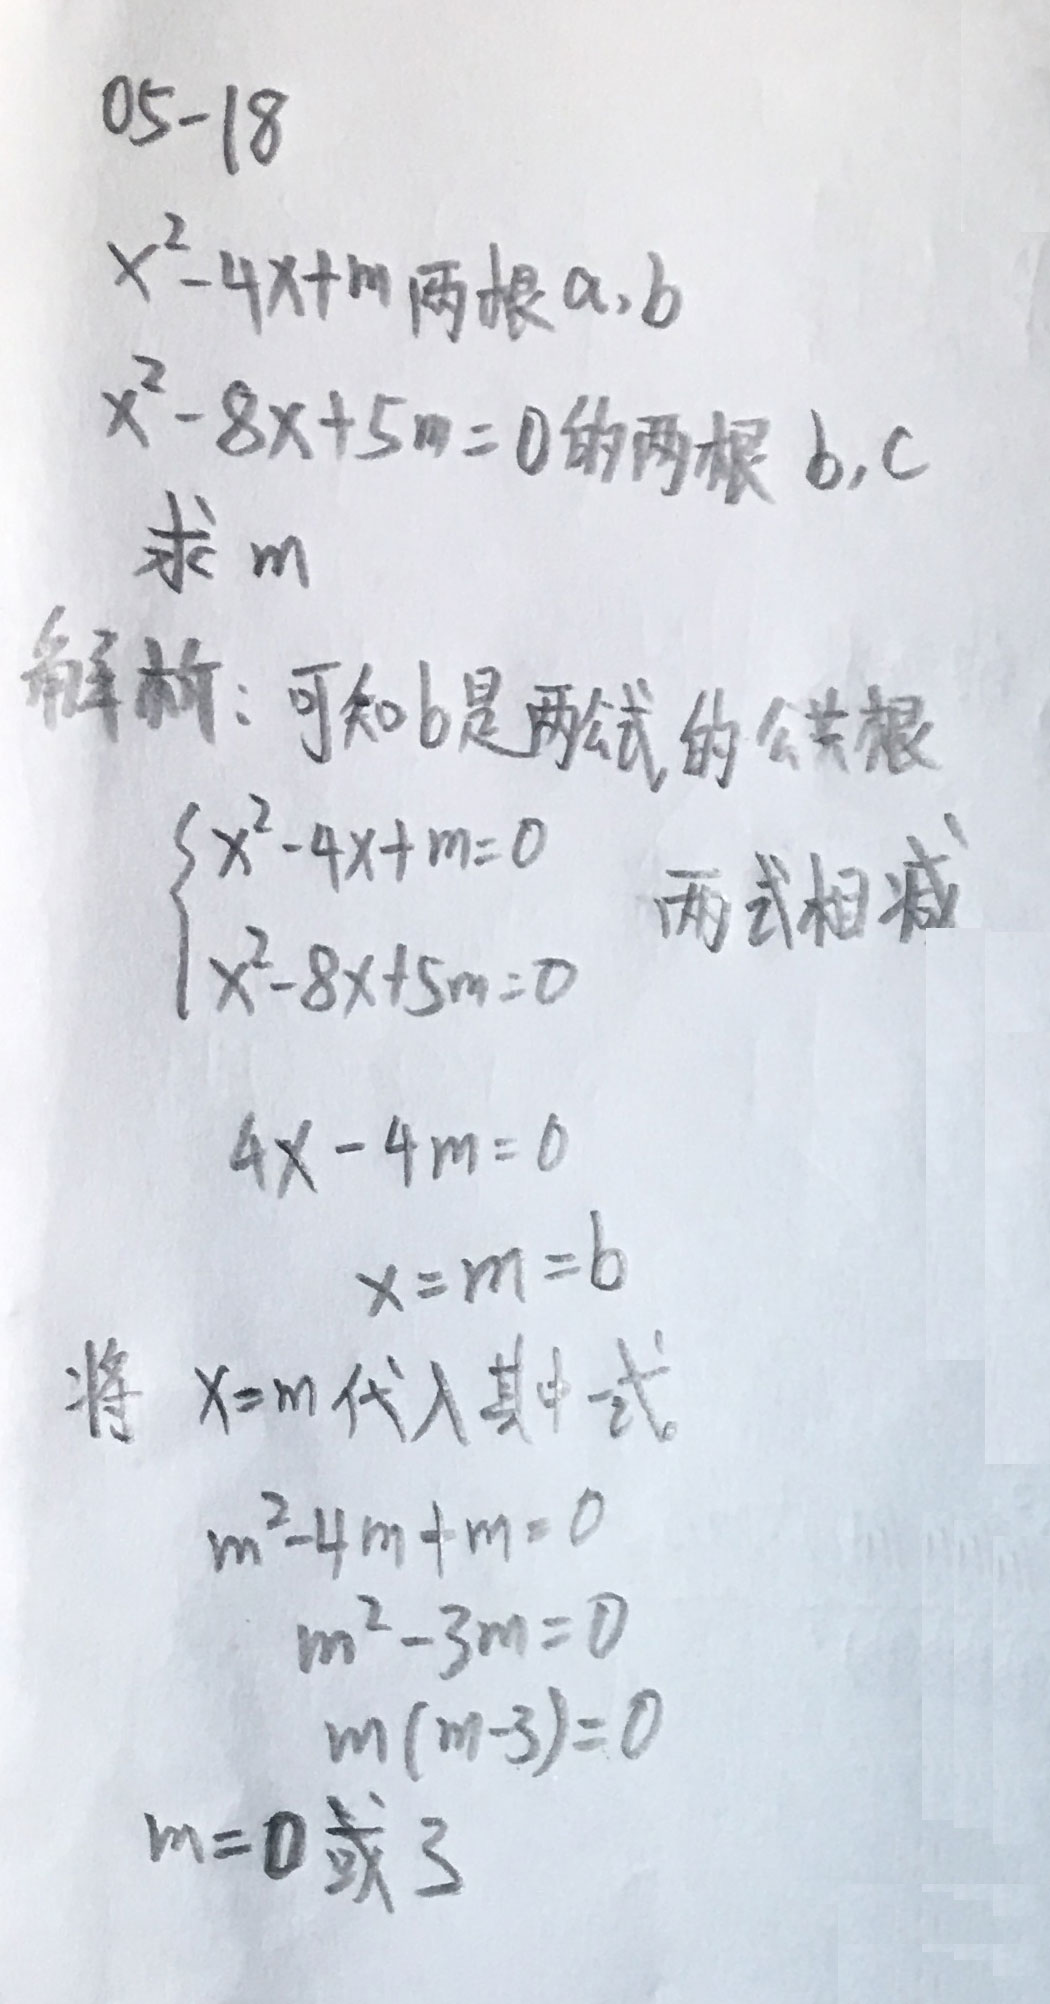 05-18
x²-4x+m两根a,b
x²-8x+5m=0的两根 b,c
求 m
解析:可知b是两公式的公共根
{x²-4x+m=0
x²-8x+5m=0 两式相减
4x-4m=0
x=m=b
将 x=m代入其中一式
m²-4m+m=0
m²-3m=0
m(m-3)=0
m=0或3